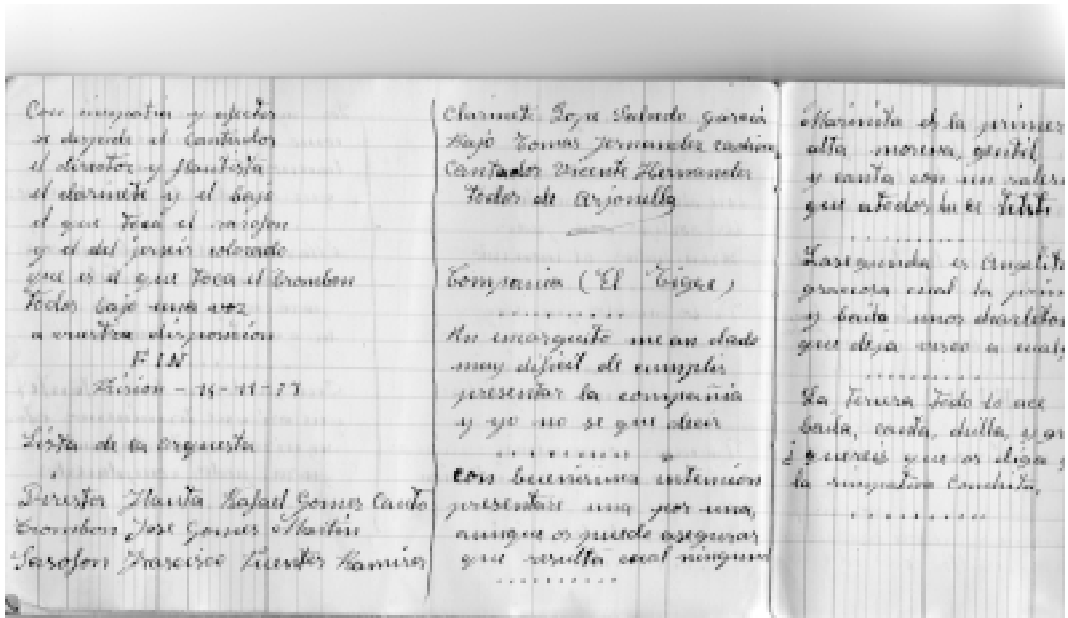 Con simpatia y afecto
se despide el Cantador
el director y flautista
el clarinete y el bajo
el que toca el sarofon
y el del jerseis colorado
que es el que toca el trombon
todos bajo una voz
a vuestra disposición
FIN
Prision - 14-11-
Lista de la orquesta
Director Flauta Rafael Gomes Canto
trombon Jose Gomes Martin
Sarofon Francisco Fuentes Ramires
Clarinete Jose Salcedo garcia
Bajo Tomas Fernandez
Cantador Vicente Hernandez
todos de arjonilla
Compania (El Tigre)
..........
Un encarguito me an dado
muy dificil de cumplir
presentar la compañia
y yo no se que decir
..........
con buenisima intension
presentare una por una,
aunque os puedo asegurar
que resulta cual ninguna
..........
Marinita es la primer
alta morena, gentil,
y canta con un saler
que a todos hace
..........
La segunda es Angelita
graciosa cual la prim
y baila unos charleton
que deja visco a cualq
..........
La tercera todo lo ace
baila, canta, chilla, y
¿ quereis que os diga
la simpatica Conchita,
..........